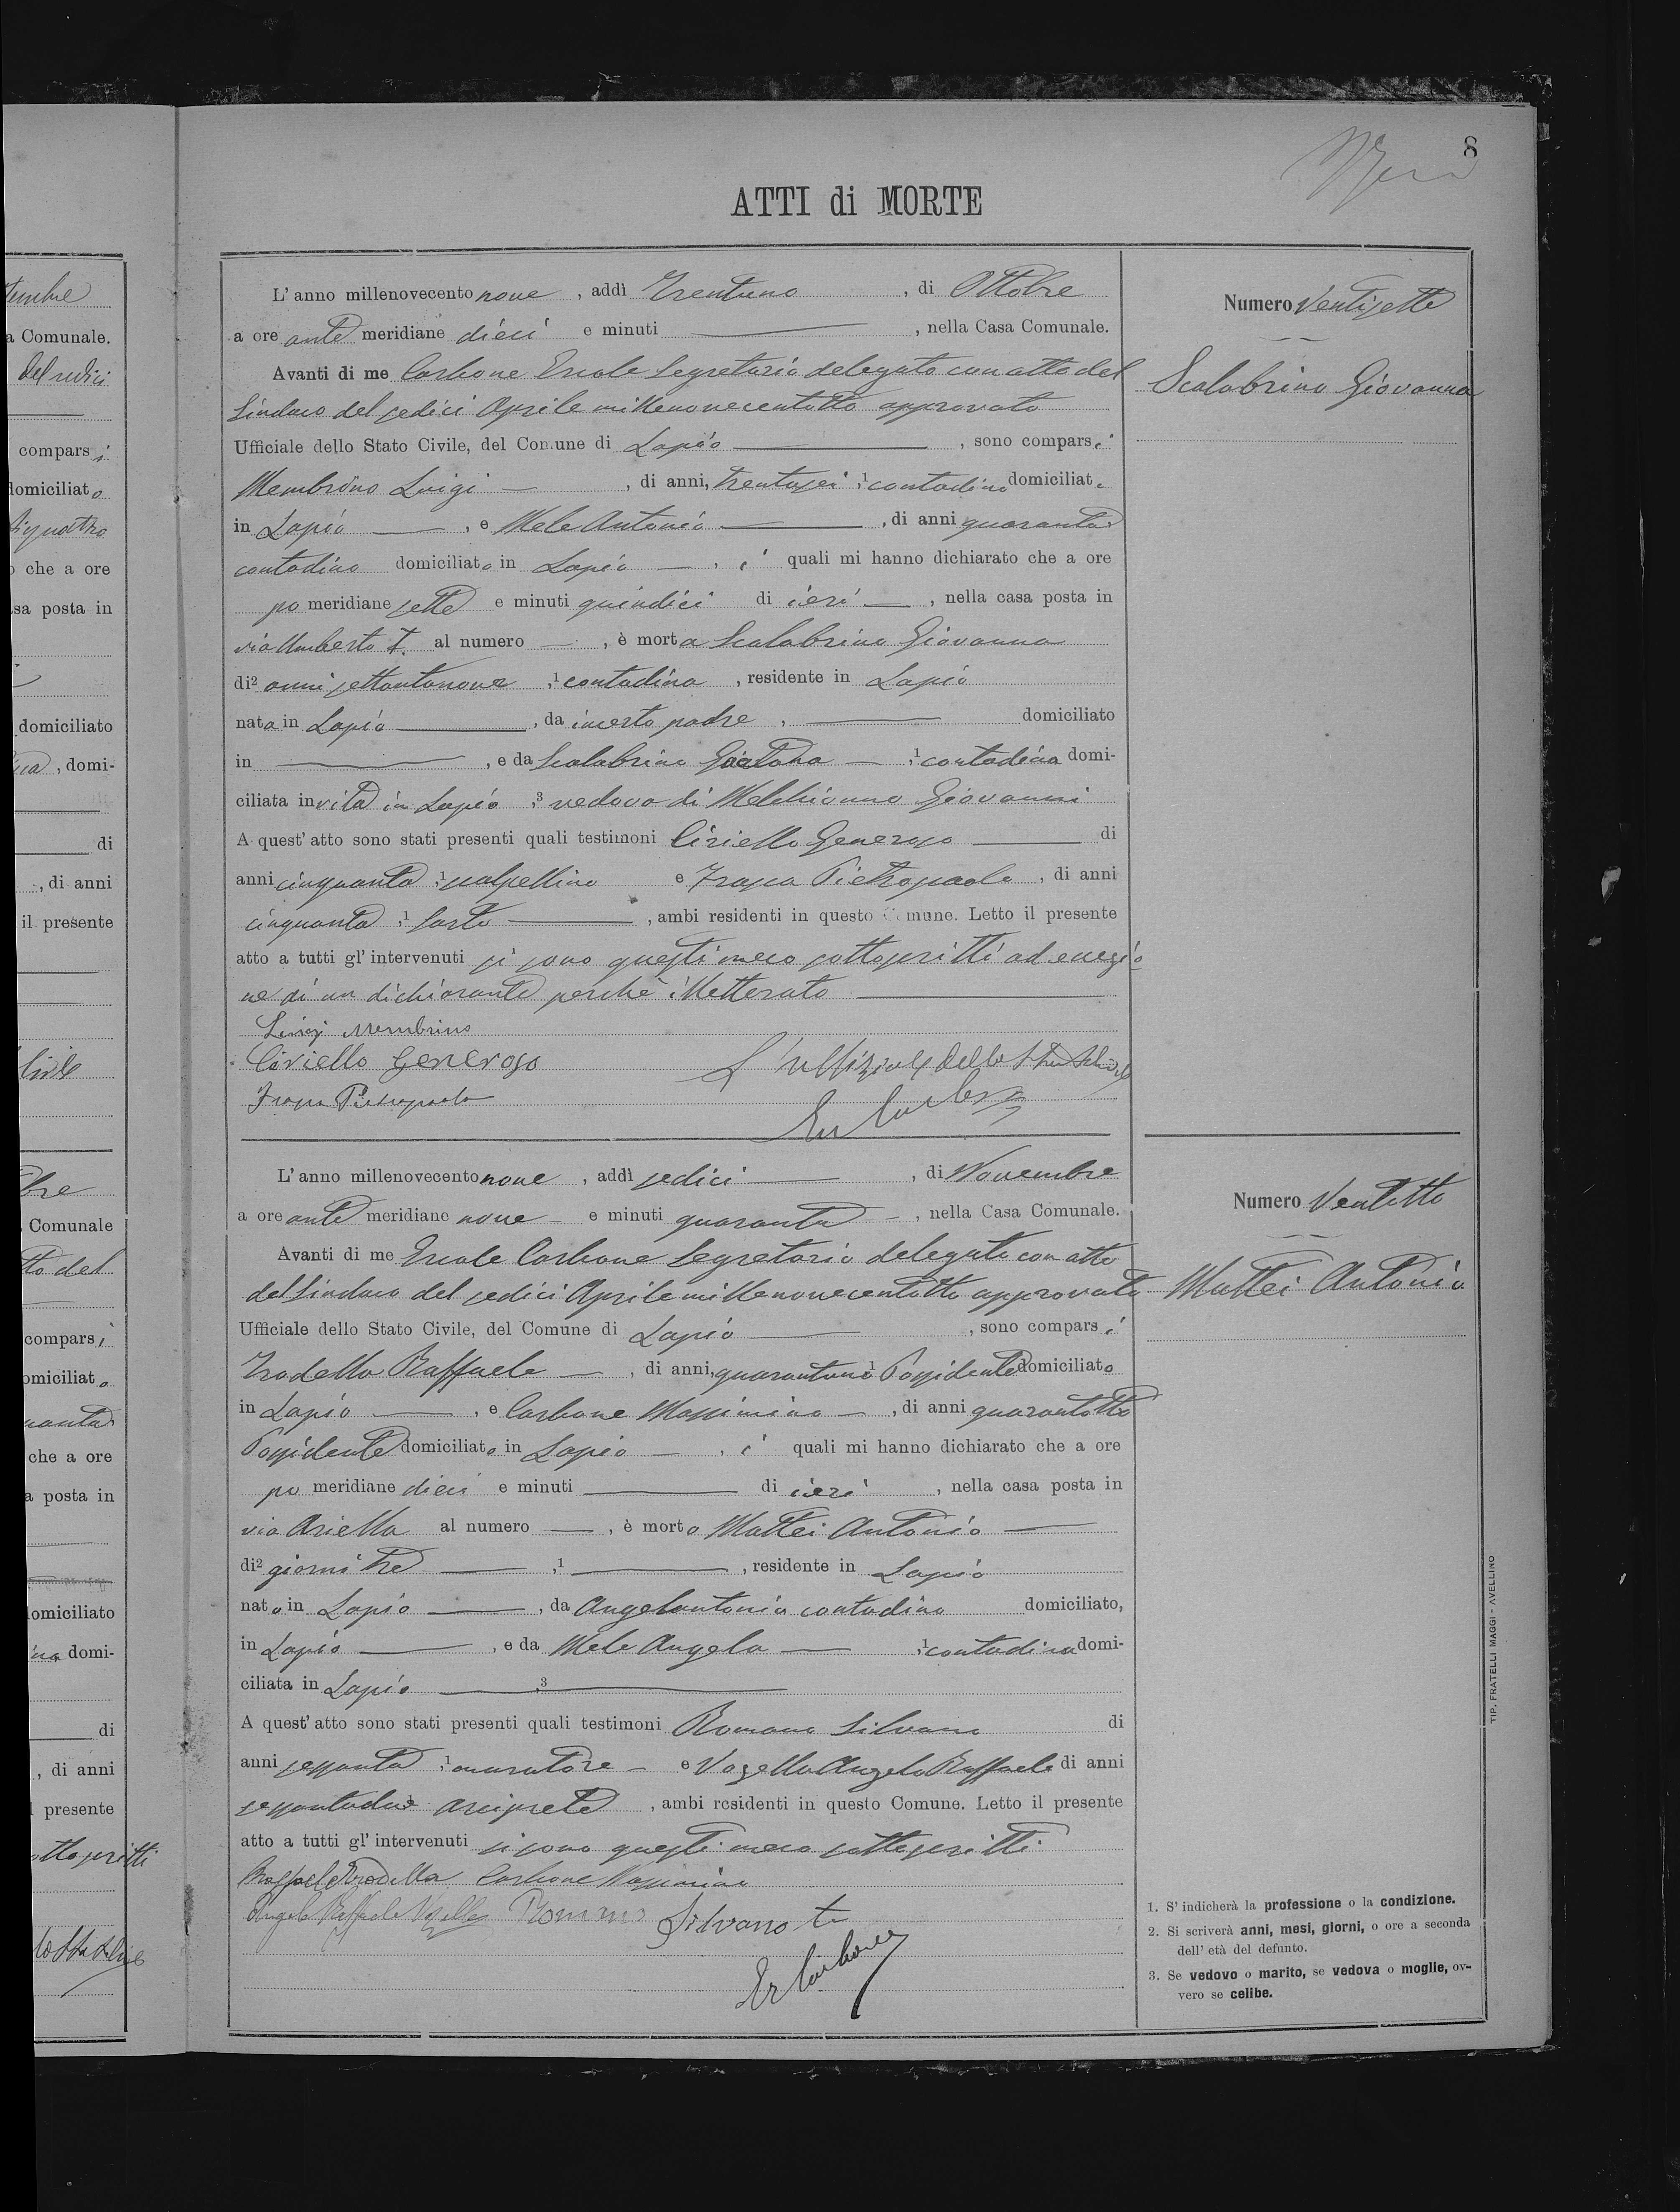 8
ATTI di MORTE
L'anno millenovecento nove, addì Trentuno, di Ottobre
a ore ante meridiane dieci e minuti —, nella Casa Comunale.
Avanti di me Carbone Ercole Segretario delegato con atto del
Sindaco del sedici Aprile millenovecentotto approvato
Ufficiale dello Stato Civile, del Comune di Lapio —, sono comparsi
Membrino Luigi —, di anni, trentasei,¹ contadino domiciliato
in Lapio —, e Mele Antonio —, di anni quaranta
contadino domiciliato in Lapio —, i quali mi hanno dichiarato che a ore
po meridiane sette e minuti quindici di ieri —, nella casa posta in
via Umberto I. al numero —, è morta Scalabrino Giovanna
di² anni settantanove,¹ contadina, residente in Lapio
nata in Lapio —, da incerto padre, — domiciliato
in —, e da Scalabrino Gaetana —,¹ contadina domi-
ciliata in vita in Lapio,³ vedova di Melchionno Giovanni
A quest'atto sono stati presenti quali testimoni Ciriello Generoso — di
anni cinquanta,¹ scalpellino e Frasca Pietropaolo, di anni
cinquanta,¹ sarto —, ambi residenti in questo Comune. Letto il presente
atto a tutti gl'intervenuti si sono questi meco sottoscritti ad eccezio
ne di un dichiarante perchè illetterato —
Luigi Membrino
Ciriello Generoso L'uffiziale dello Stato Civile
Frasca Pietropaolo
Er Carbone
Numero Ventisette
Scalabrino Giovanna
L'anno millenovecento nove, addì sedici —, di Novembre
a ore ante meridiane nove e minuti quaranta —, nella Casa Comunale.
Avanti di me Ercole Carbone Segretario delegato con atto
del Sindaco del sedici Aprile millenovecentotto approvato
Ufficiale dello Stato Civile, del Comune di Lapio —, sono comparsi
Trodella Raffaele —, di anni, quarantuno¹ Possidente domiciliato
in Lapio —, e Carbone Massimino —, di anni quarantotto
Possidente domiciliato in Lapio —, i quali mi hanno dichiarato che a ore
po meridiane dieci e minuti — di ieri, nella casa posta in
via Ariella al numero —, è morto Mattei Antonio —
di² giorni tre —,¹ —, residente in Lapio
nato in Lapio —, da Angelantonio contadino domiciliato,
in Lapio —, e da Mele Angela —,¹ contadina domi-
ciliata in Lapio —,³ —
A quest'atto sono stati presenti quali testimoni Romano Silvano di
anni sessanta,¹ muratore — e Vozella Angelo Raffaele di anni
sessantadue arciprete, ambi residenti in questo Comune. Letto il presente
atto a tutti gl'intervenuti si sono questi meco sottoscritti
Raffaele Trodella Carbone Massimino
Angelo Raffaele Vozella Romano Silvano te
Er Carbone
Numero Ventotto
Mattei Antonio
1. S'indicherà la professione o la condizione.
2. Si scriverà anni, mesi, giorni, o ore a seconda
dell'età del defunto.
3. Se vedovo o marito, se vedova o moglie, ov-
vero se celibe.
TIP. FRATELLI MAGGI - AVELLINO
tembre
a Comunale.
del sedici
comparsi
domiciliato
che a ore
sa posta in
domiciliato
, domi-
di
, di anni
il presente
Civile
bre
Comunale
tto del
comparsi
omiciliato
uanta
che a ore
a posta in
domiciliato
domi-
di
, di anni
presente
ottoscritti